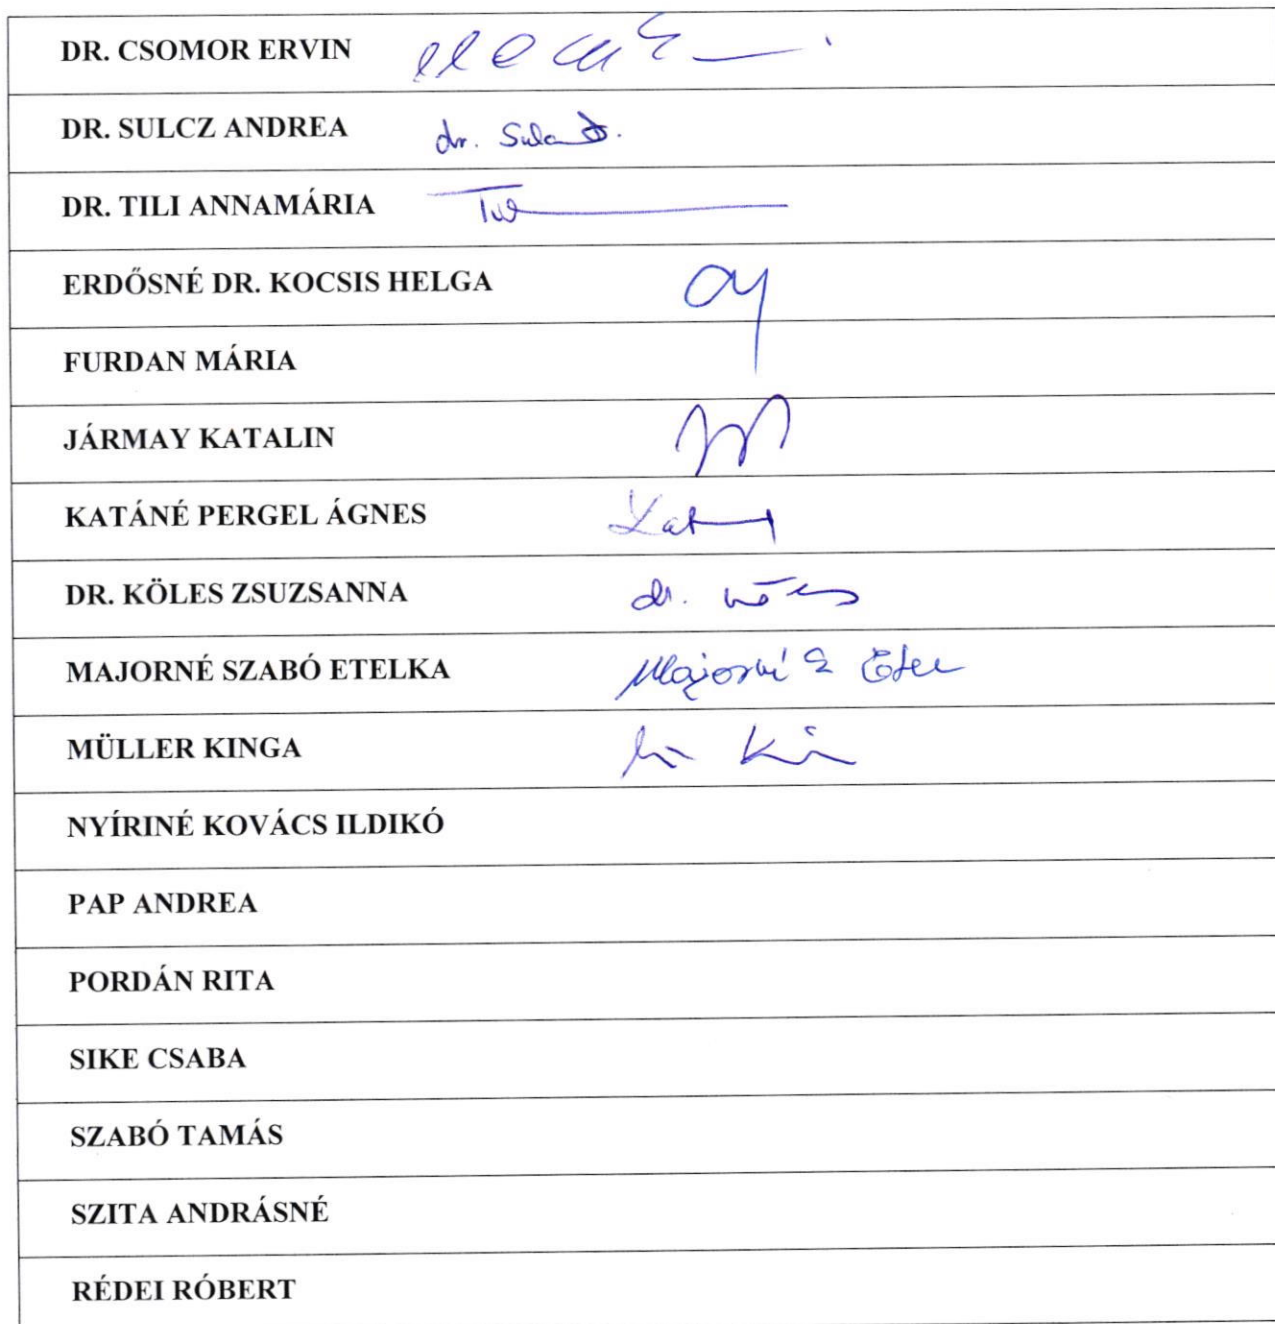 DR. CSOMOR ERVIN
DR. SULCZ ANDREA dr.
DR. TILI ANNAMÁRIA
ERDŐSNÉ DR. KOCSIS HELGA
FURDAN MÁRIA
JÁRMAY KATALIN
KATÁNÉ PERGEL ÁGNES
DR. KÖLES ZSUZSANNA dr.
MAJORNÉ SZABÓ ETELKA
MÜLLER KINGA
NYÍRINÉ KOVÁCS ILDIKÓ
PAP ANDREA
PORDÁN RITA
SIKE CSABA
SZABÓ TAMÁS
SZITA ANDRÁSNÉ
RÉDEI RÓBERT